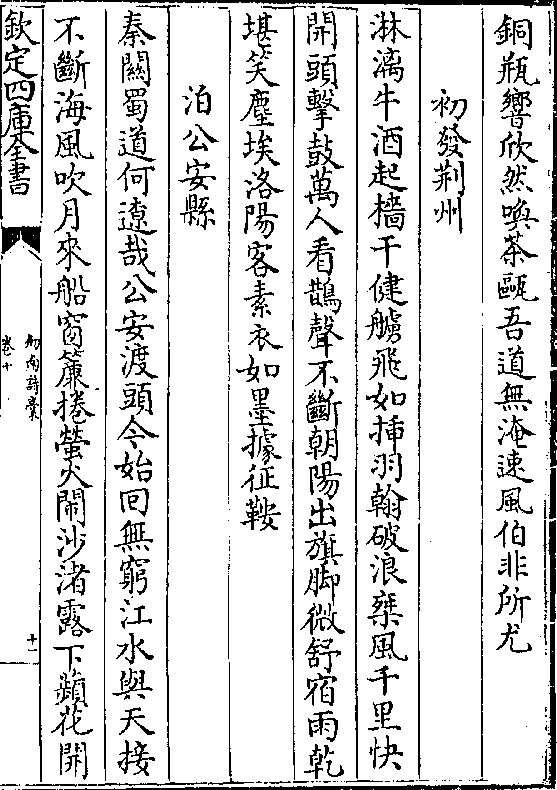 銅瓶響欣然喚茶甌吾道無淹速風伯非所尤
初發荆州
淋漓牛酒起檣干健艣飛如挿羽翰破浪椉風千里快
開頭擊鼓萬人看鵲聲不斷朝陽出旗脚微舒宿雨乾
堪笑塵埃洛陽客素衣如墨據征鞍
泊公安縣
秦關蜀道何遼哉公安渡頭今始回無窮江水與天接
不斷海風吹月來船窗簾捲螢火鬧沙渚露下蘋花開
欽定四庫全書
劍南詩稾
卷十
十一